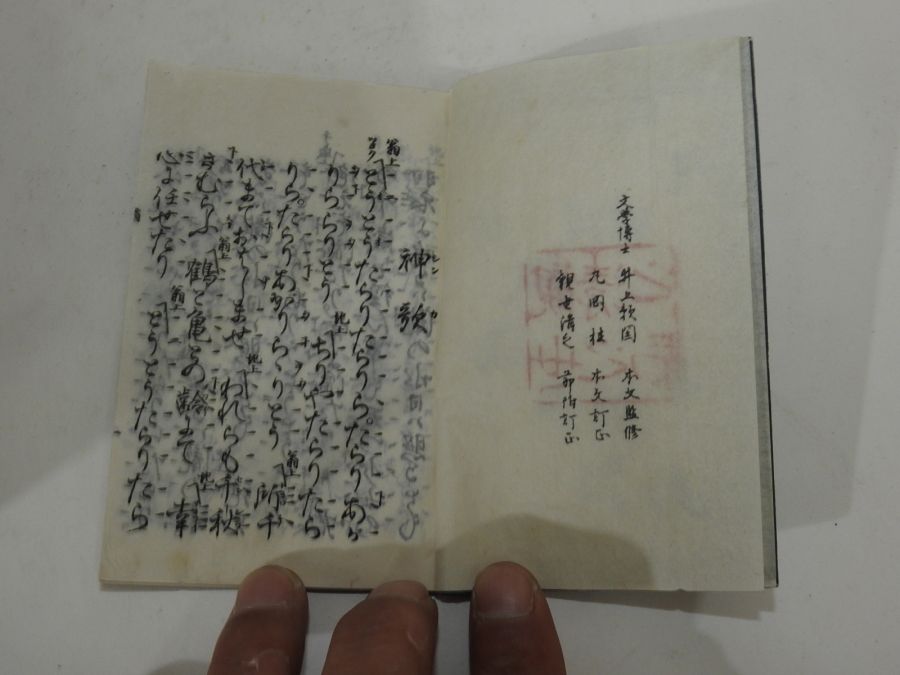 文學博士 井上頼圀 本文監修
丸岡 桂 本文訂正
観世清之 節附訂正
神歌
シン カ
翁上 とうとうたらりたらりら。たらりあが
りららりとう 地上 ちりやたらりたら
りら。たらりあがりらゝりとう 翁上 所千
代までおはしませ 地上 われらも千秋
さむらふ 翁上 鶴と亀との齢にて 地上 幸
心に任せたり 翁上 とうとうたらりたら